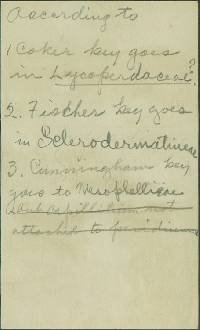 According to
1 Coker key goes
in Lycoperdaceae?
2. Fischer key goes
in Sclerodermatineae
3. Cunningham key
goes to Mesophelliaceae
but capillitium not
attached to peridium